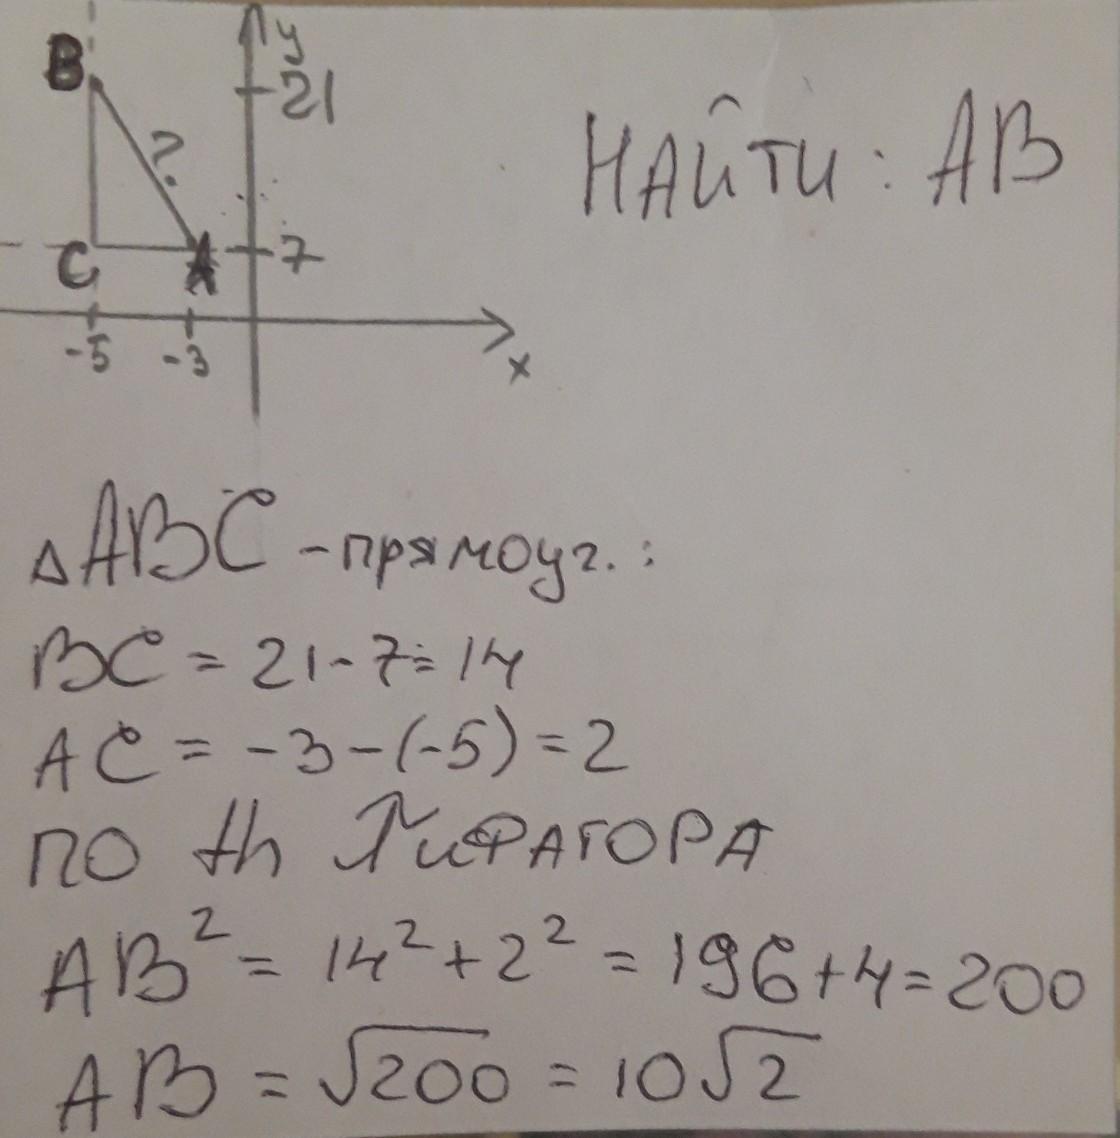 y
B
21
?
НАЙТИ: AB
C
A
7
-5
-3
x
△ABC - прямоуг.:
BC = 21 - 7 = 14
AC = -3 - (-5) = 2
ПО th ПИФАГОРА
AB² = 14² + 2² = 196 + 4 = 200
AB = √200 = 10√2